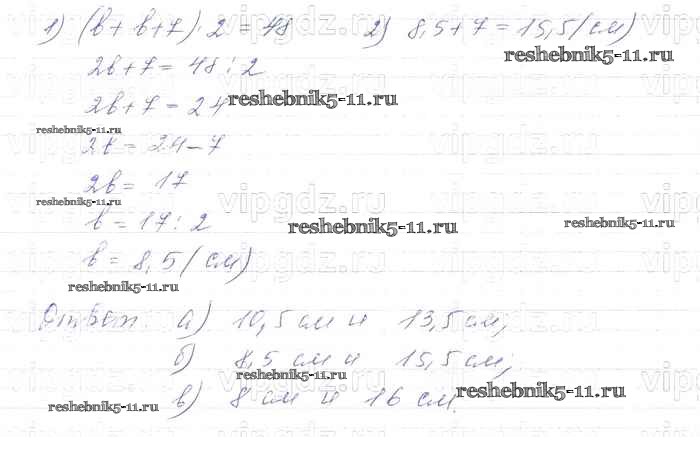 1) (b + b + 7) · 2 = 48
2b + 7 = 48 : 2
2b + 7 = 24
2b = 24 - 7
2b = 17
b = 17 : 2
b = 8,5 (см)
2) 8,5 + 7 = 15,5 (см)
Ответ: а) 10,5 см и 13,5 см;
б) 8,5 см и 15,5 см;
в) 8 см и 16 см.
reshebnik5-11.ru
reshebnik5-11.ru
reshebnik5-11.ru
reshebnik5-11.ru
reshebnik5-11.ru
reshebnik5-11.ru
reshebnik5-11.ru
reshebnik5-11.ru
reshebnik5-11.ru
reshebnik5-11.ru
vipgdz.ru